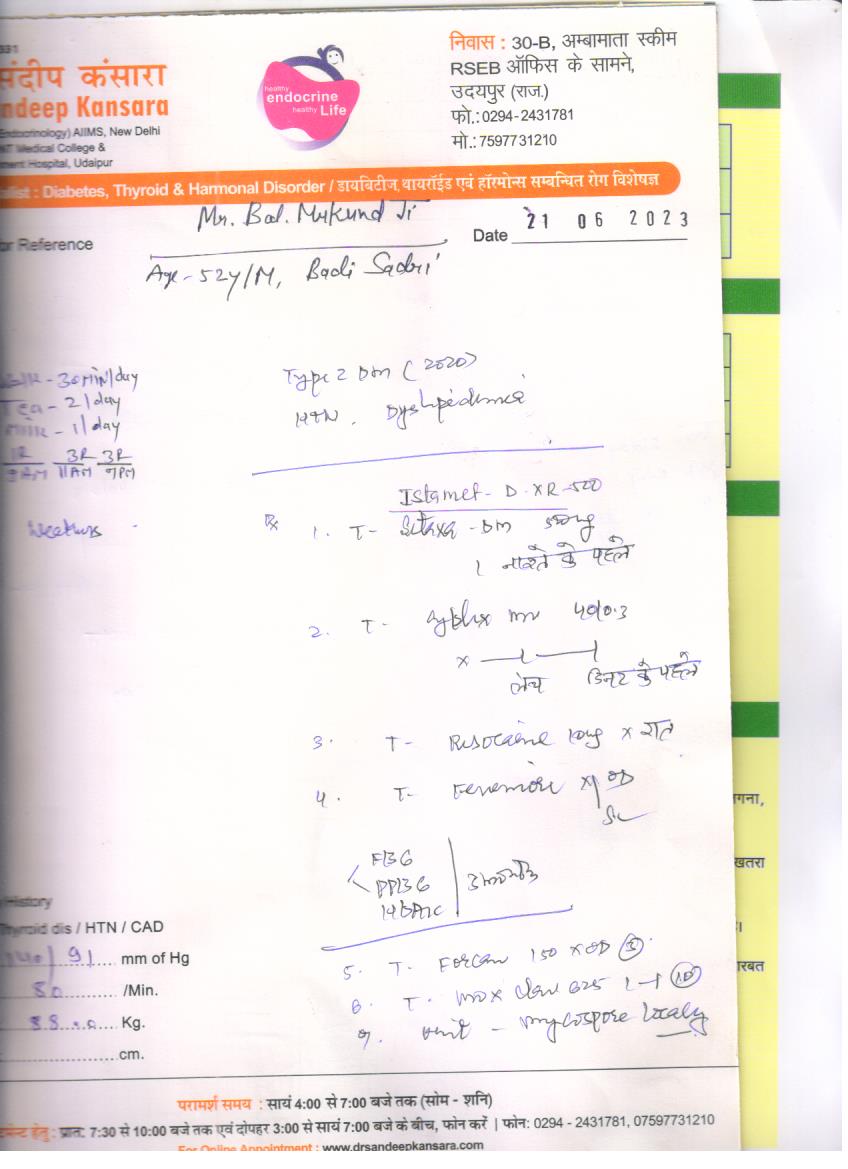 संदीप कंसारा
ndeep Kansara
Endocrinology) AIIMS, New Delhi
NT Medical College &
ment Hospital, Udaipur
healthy
endocrine
healthy Life
निवास : 30-B, अम्बामाता स्कीम
RSEB ऑफिस के सामने,
उदयपुर (राज.)
फो.:0294-2431781
मो.: 7597731210
list : Diabetes, Thyroid & Harmonal Disorder / डायबिटीज, थायरॉईड एवं हॉरमोन्स सम्बन्धित रोग विशेषज्ञ
Mr. Bal. Mukund Ji
or Reference
Date 21 06 2023
Age - 52y/M, Badi Sadri
- 30 min/day
Tea - 2/day
Milk - 1/day
1R 3R 3R
9AM 11AM 7PM
Type 2 Dm (2020)
HTN.
Istamet - D. XR - 500
Rx
1. T- - Dm
1 नाश्ते के पहले
2. T- mv
x
लंच डिनर के पहले
3. T- x रात
4. T- x OD
FBG
PPBG
HbA1c
3 months
History
Thyroid dis / HTN / CAD
140/91 mm of Hg
80 /Min.
88 Kg.
cm.
5. T. Forcan 150 x OD
6. T. mox clav 625 1-1 10
7. - mycospore localy
गना,
खतरा
रबत
परामर्श समय : सायं 4:00 से 7:00 बजे तक (सोम - शनि)
हेतु : प्रात: 7:30 से 10:00 बजे तक एवं दोपहर 3:00 से सायं 7:00 बजे के बीच, फोन करें | फोन: 0294 - 2431781, 07597731210
For Online Appointment : www.drsandeepkansara.com